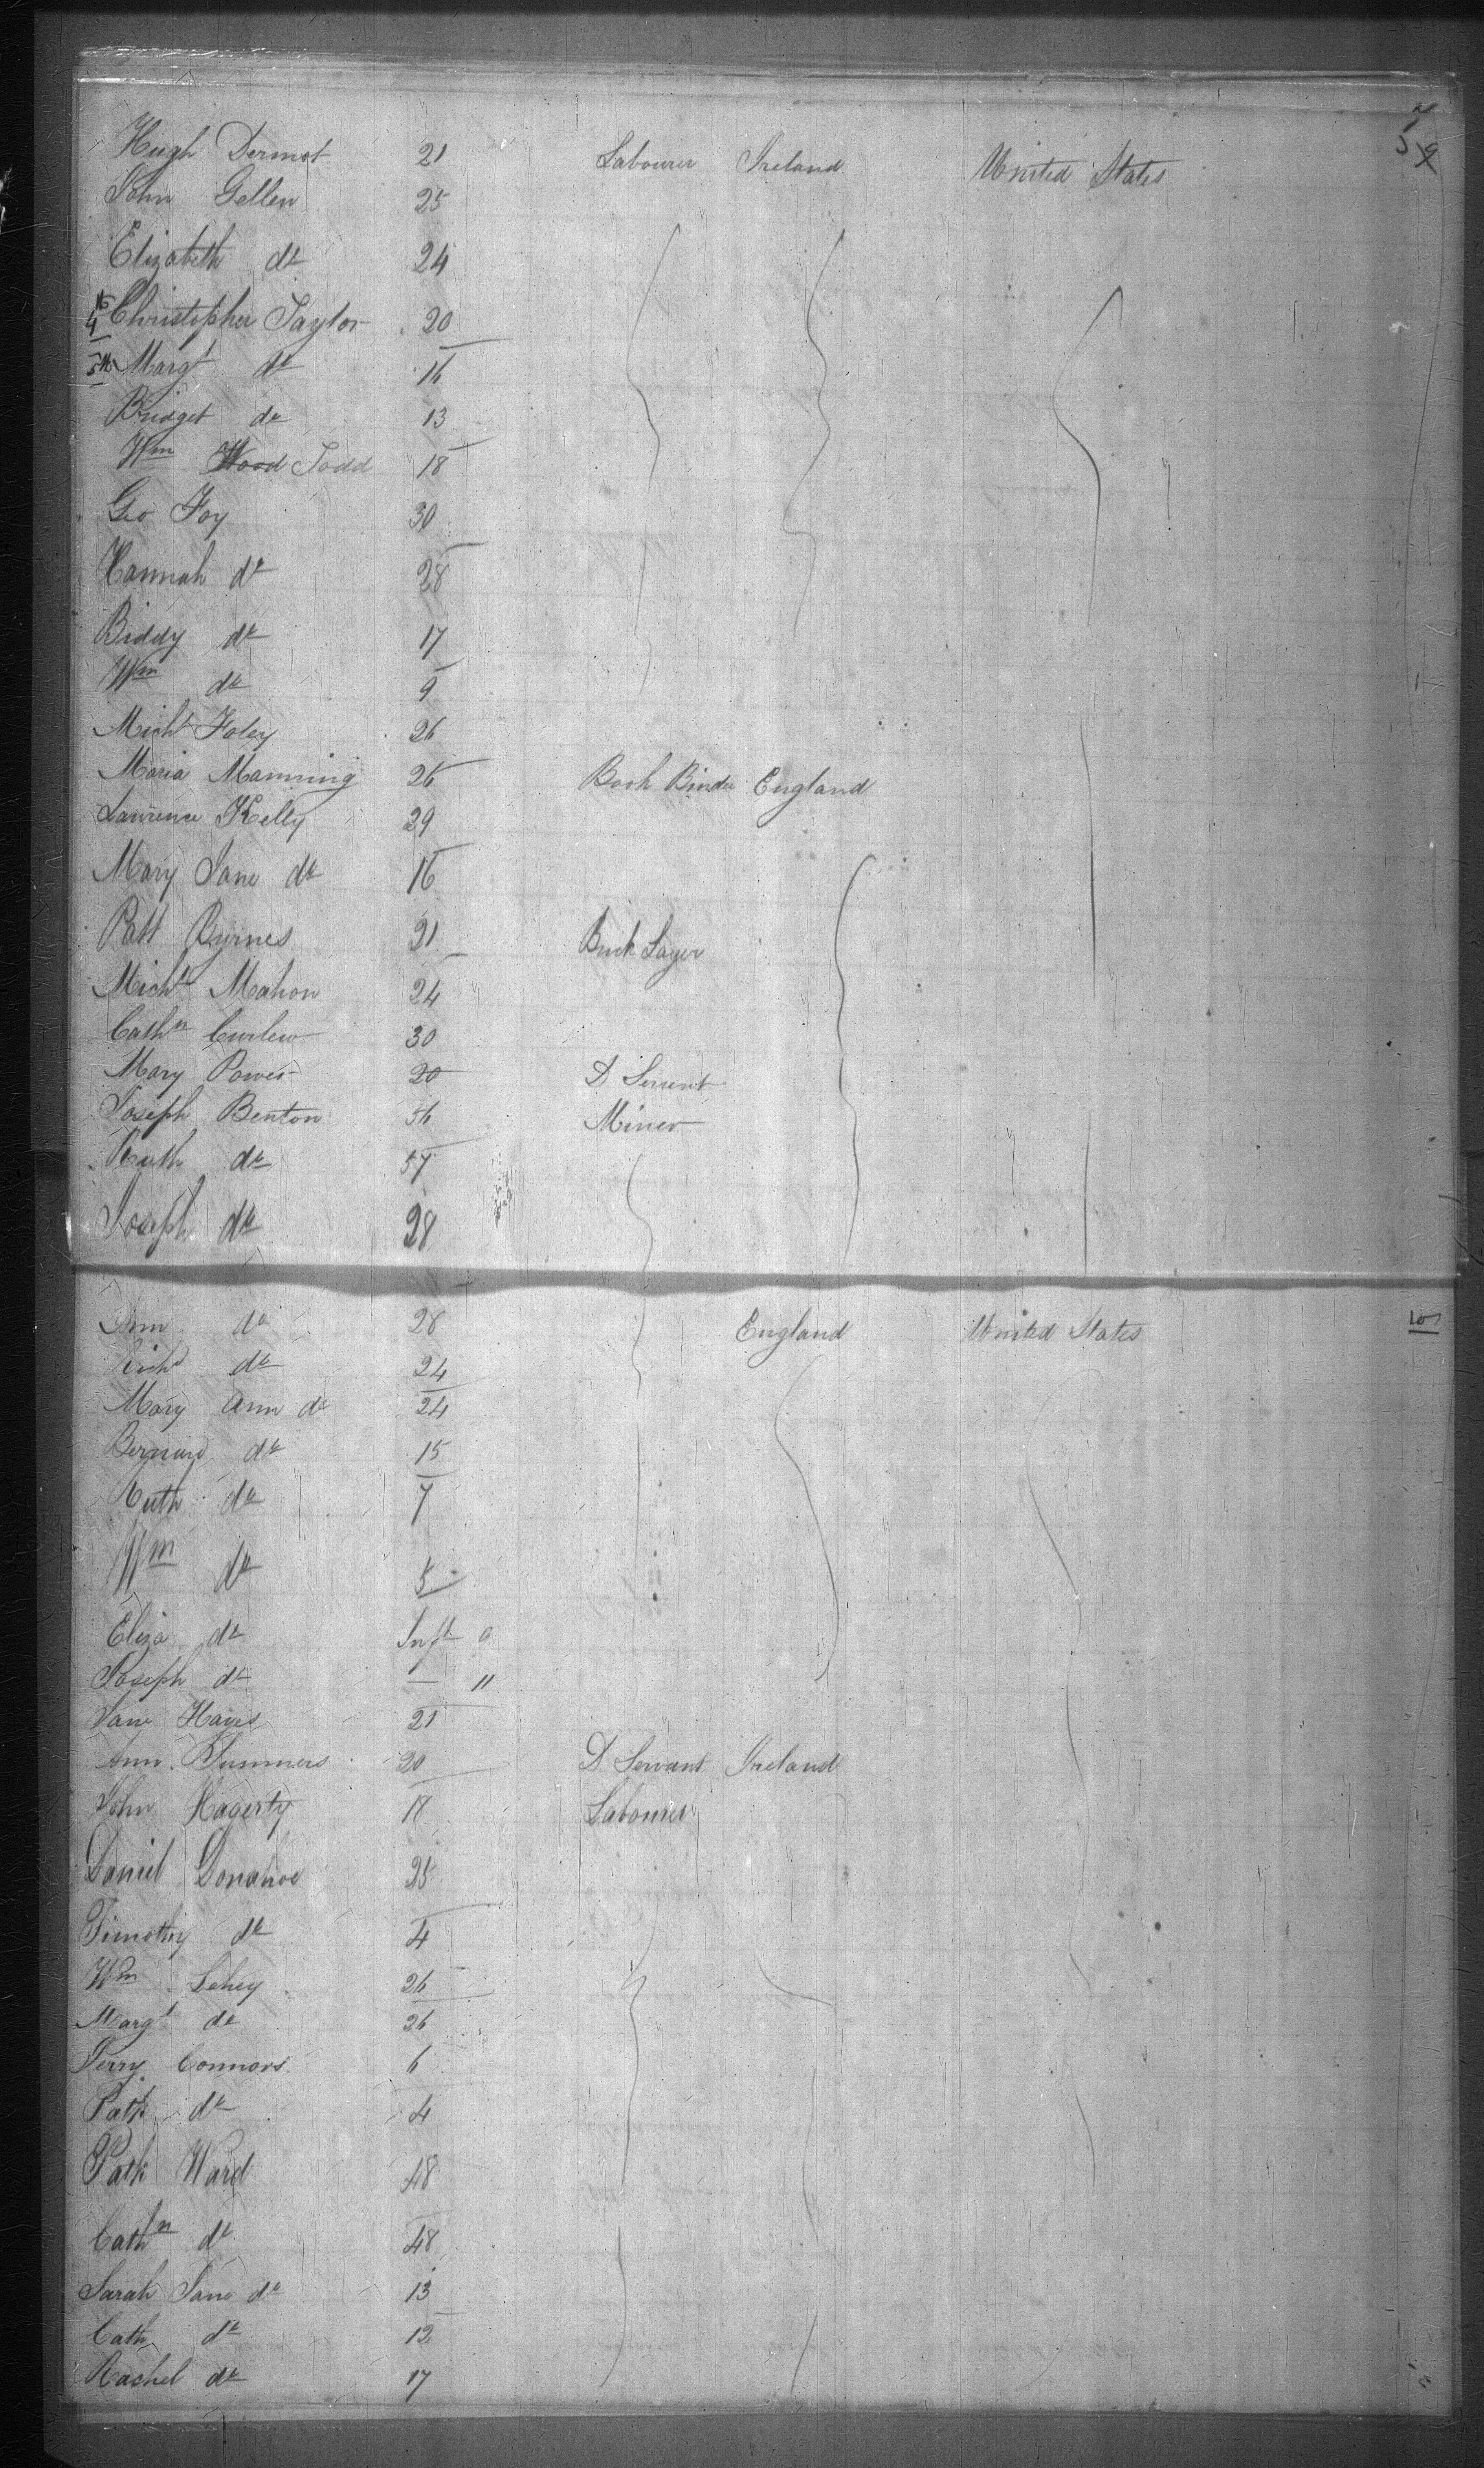 Hugh Dermot 21 Labourer Ireland United States
John Gellen 25
Elizabeth do 24
Christopher Taylor 20
Margt do 16
Bridget do 13
Wm Wood Todd 18
Geo Foy 30
Hannah do 28
Biddy do 17
Wm do 9
Michl Foley 26
Maria Manning 26 Book Binder England
Laurence Kelly 29
Mary Jane do 16
Patt Byrnes 21 Brick Layer
Michl Mahon 24
Cathn Curlew 30
Mary Power 20 D Servent
Joseph Benton 56 Miner
Ruth do 57
Joseph do 28
Ann do 28 England United States
Richd do 24
Mary Ann do 24
do 15
Ruth do 7
Wm do 5
Eliza do Inft 0
Joseph do — 11
Jane Hayes 21
Ann Summers 20 D Servant Ireland
John Hagerty 18 Labourer
Daniel Donahoe 25
Timothy do 4
Wm Lehey 26
Margt do 26
Terry Connors 6
Patk do 4
Patk Ward 48
Cathn do 48
Sarah Jane do 13
Cath do 12
Rachel do 17